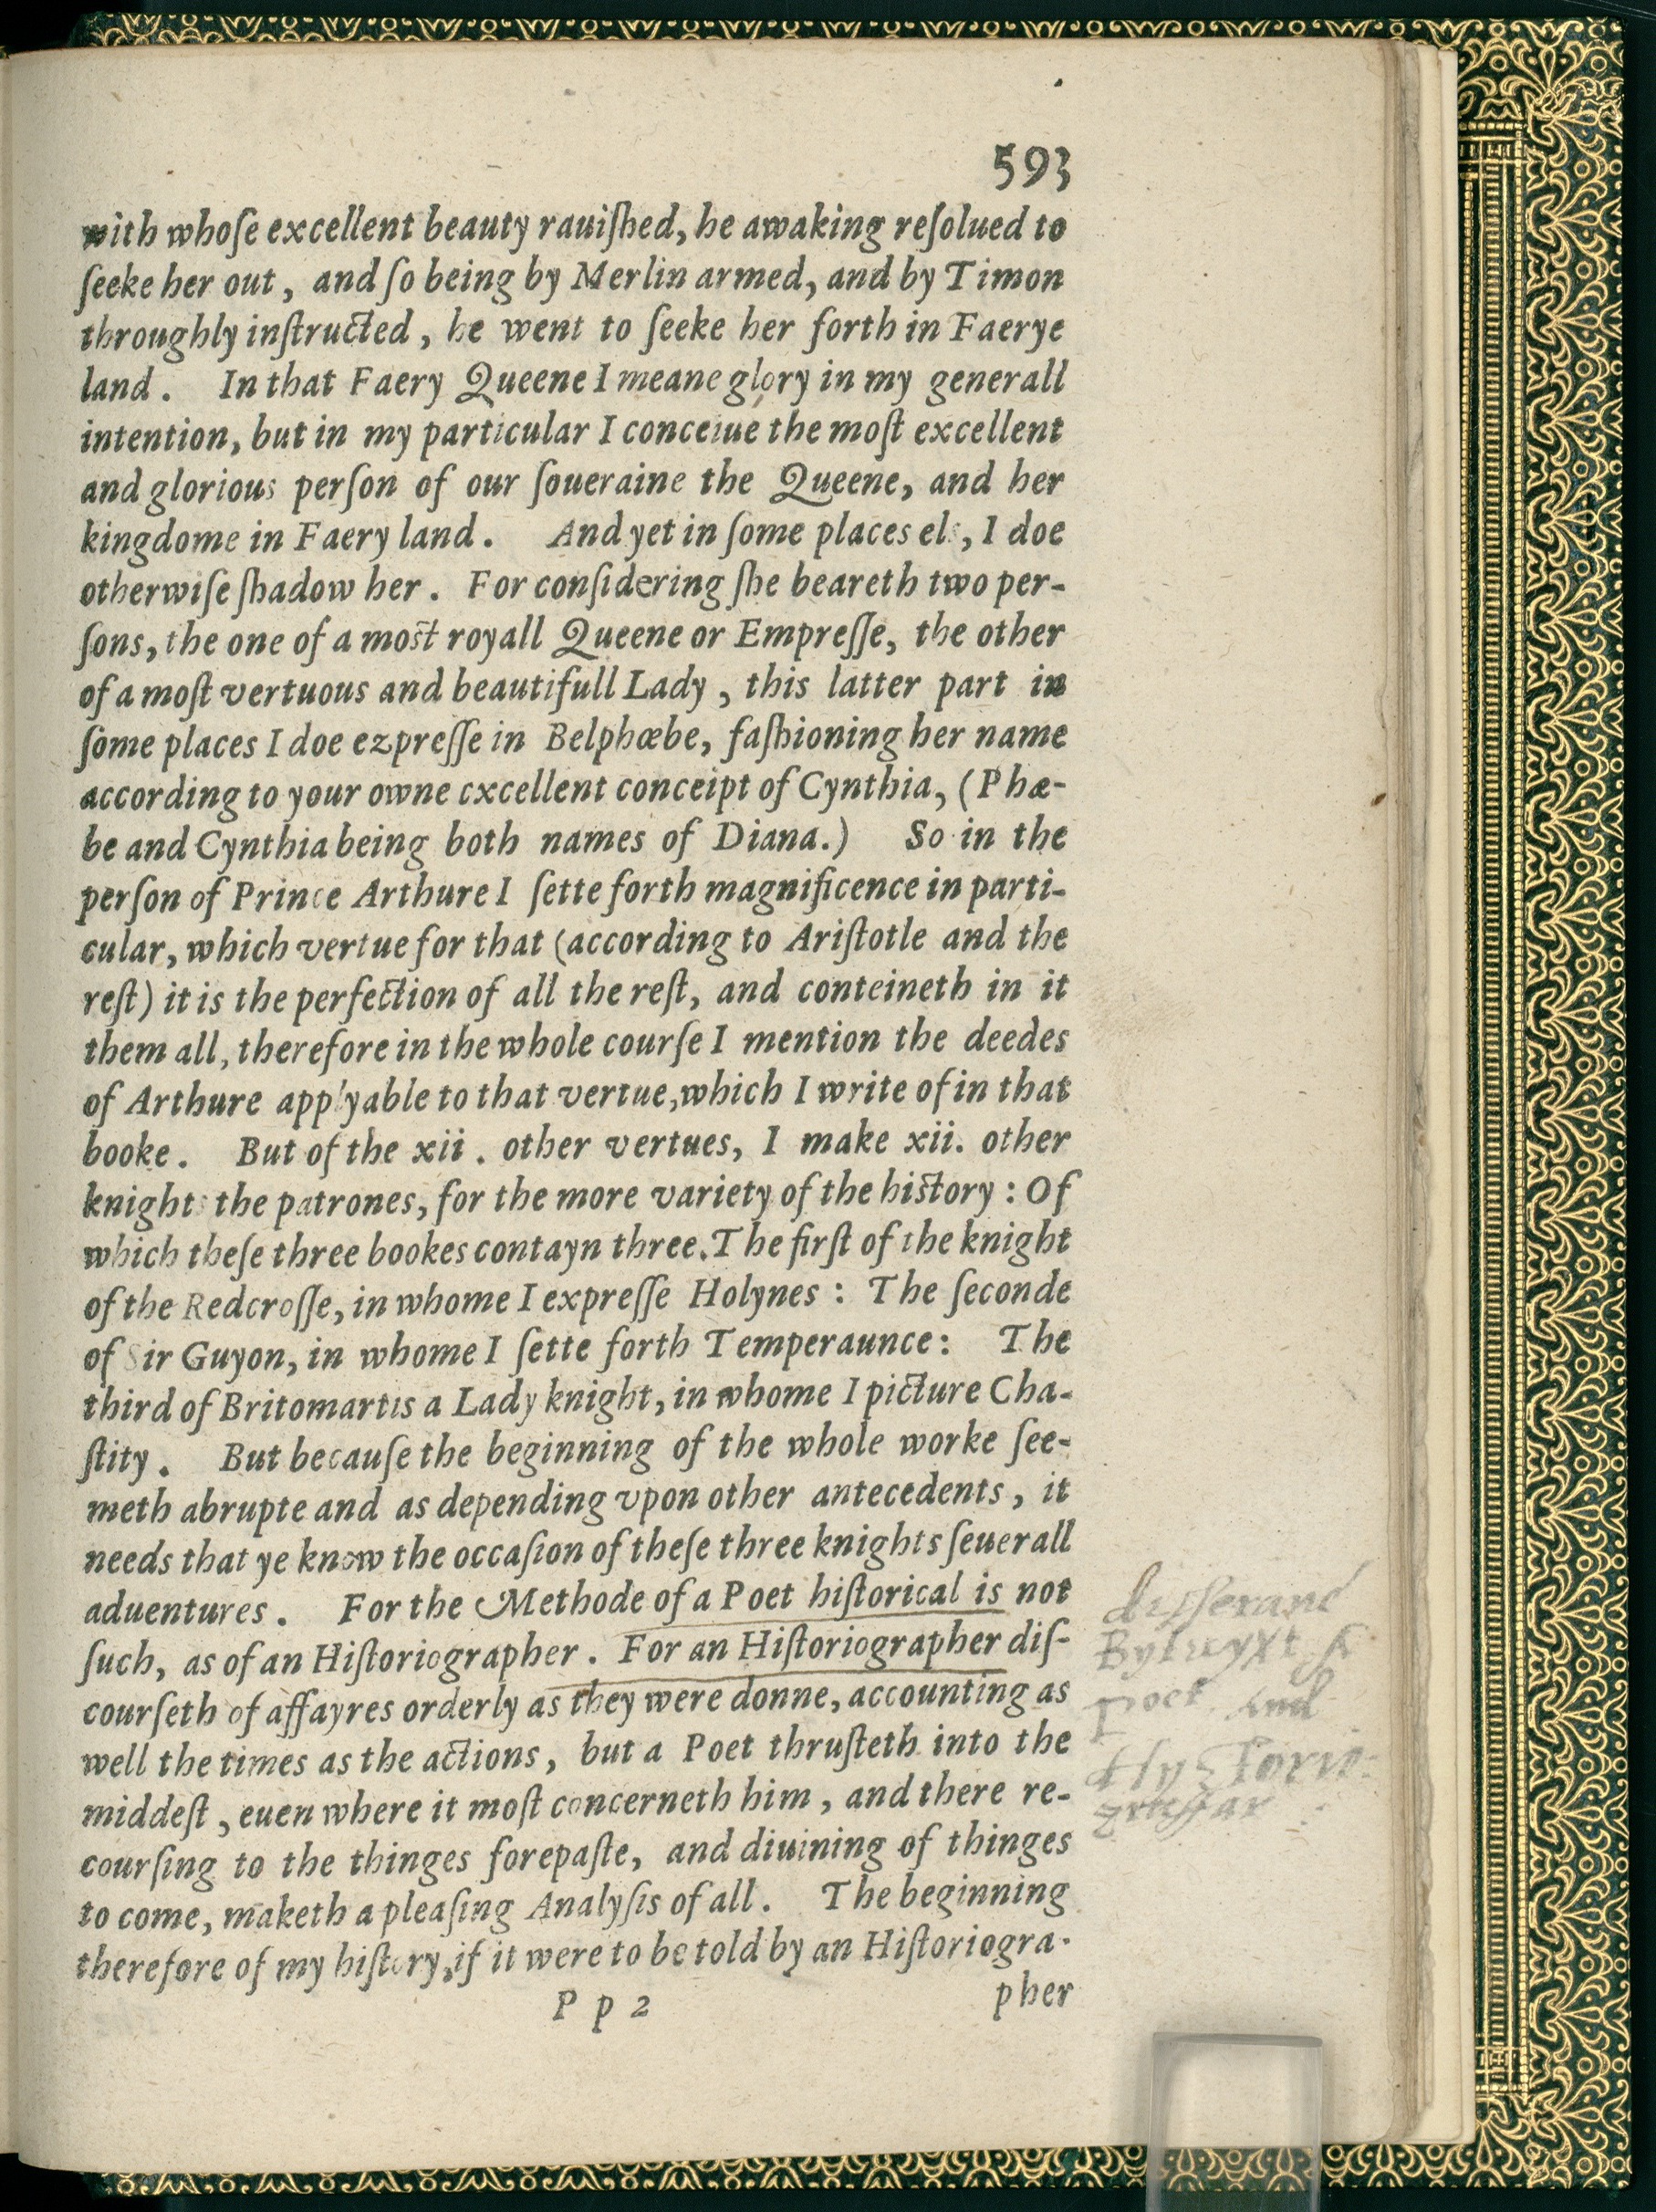 593
with whoſe excellent beauty rauiſhed, he awaking reſolued to
ſeeke her out, and ſo being by Merlin armed, and by Timon
throughly inſtructed, he went to ſeeke her forth in Faerye
land. In that Faery Queene I meane glory in my generall
intention, but in my particular I conceiue the moſt excellent
and glorious perſon of our ſoueraine the Queene, and her
kingdome in Faery land. And yet in ſome places els, I doe
otherwiſe ſhadow her. For conſidering ſhe beareth two per-
ſons, the one of a moſt royall Queene or Empreſſe, the other
of a moſt vertuous and beautifull Lady, this latter part in
ſome places I doe ezpreſſe in Belphœbe, faſhioning her name
according to your owne excellent conceipt of Cynthia, (Phæ-
be and Cynthia being both names of Diana.) So in the
perſon of Prince Arthure I ſette forth magnificence in parti-
cular, which vertue for that (according to Ariſtotle and the
reſt) it is the perfection of all the reſt, and conteineth in it
them all, therefore in the whole courſe I mention the deedes
of Arthure applyable to that vertue, which I write of in that
booke. But of the xii. other vertues, I make xii. other
knights the patrones, for the more variety of the hiſtory: Of
which theſe three bookes contayn three. The firſt of the knight
of the Redcroſſe, in whome I expreſſe Holynes: The ſeconde
of Sir Guyon, in whome I ſette forth Temperaunce: The
third of Britomartis a Lady knight, in whome I picture Cha-
ſtity. But becauſe the beginning of the whole worke ſee-
meth abrupte and as depending vpon other antecedents, it
needs that ye know the occaſion of theſe three knights ſeuerall
aduentures. For the Methode of a Poet hiſtorical is not
ſuch, as of an Hiſtoriographer. For an Hiſtoriographer diſ-
courſeth of affayres orderly as they were donne, accounting as
well the times as the actions, but a Poet thruſteth into the
middeſt, euen where it moſt concerneth him, and there re-
courſing to the thinges forepaſte, and diuining of thinges
to come, maketh a pleaſing Analyſis of all. The beginning
therefore of my hiſtory, if it were to be told by an Hiſtoriogra-
P p 2 pher
poet and